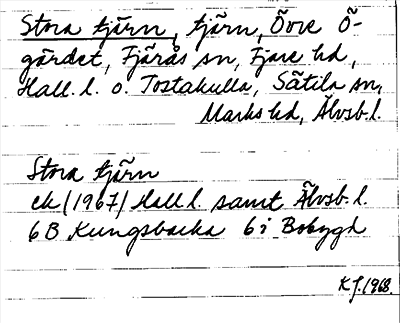 Stora tjärn, tjärn, Övre Ö-
gärdet, Fjärås sn, Fjäre hd,
Hall. l. o. Tostakulla, Sätila sn,
Marks hd, Älvsb. l.
Stora tjärn
ek (1967) Hall l. samt Älvsb. l.
6B Kungsbacka 6i Bobygd
K J. 1968.